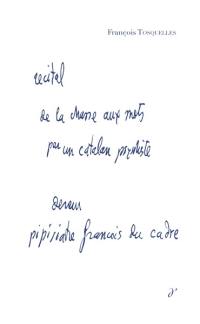 François TOSQUELLES
recital
de la chasse aux mots
par un catalan
devenu
pipisiatre francois du cadre